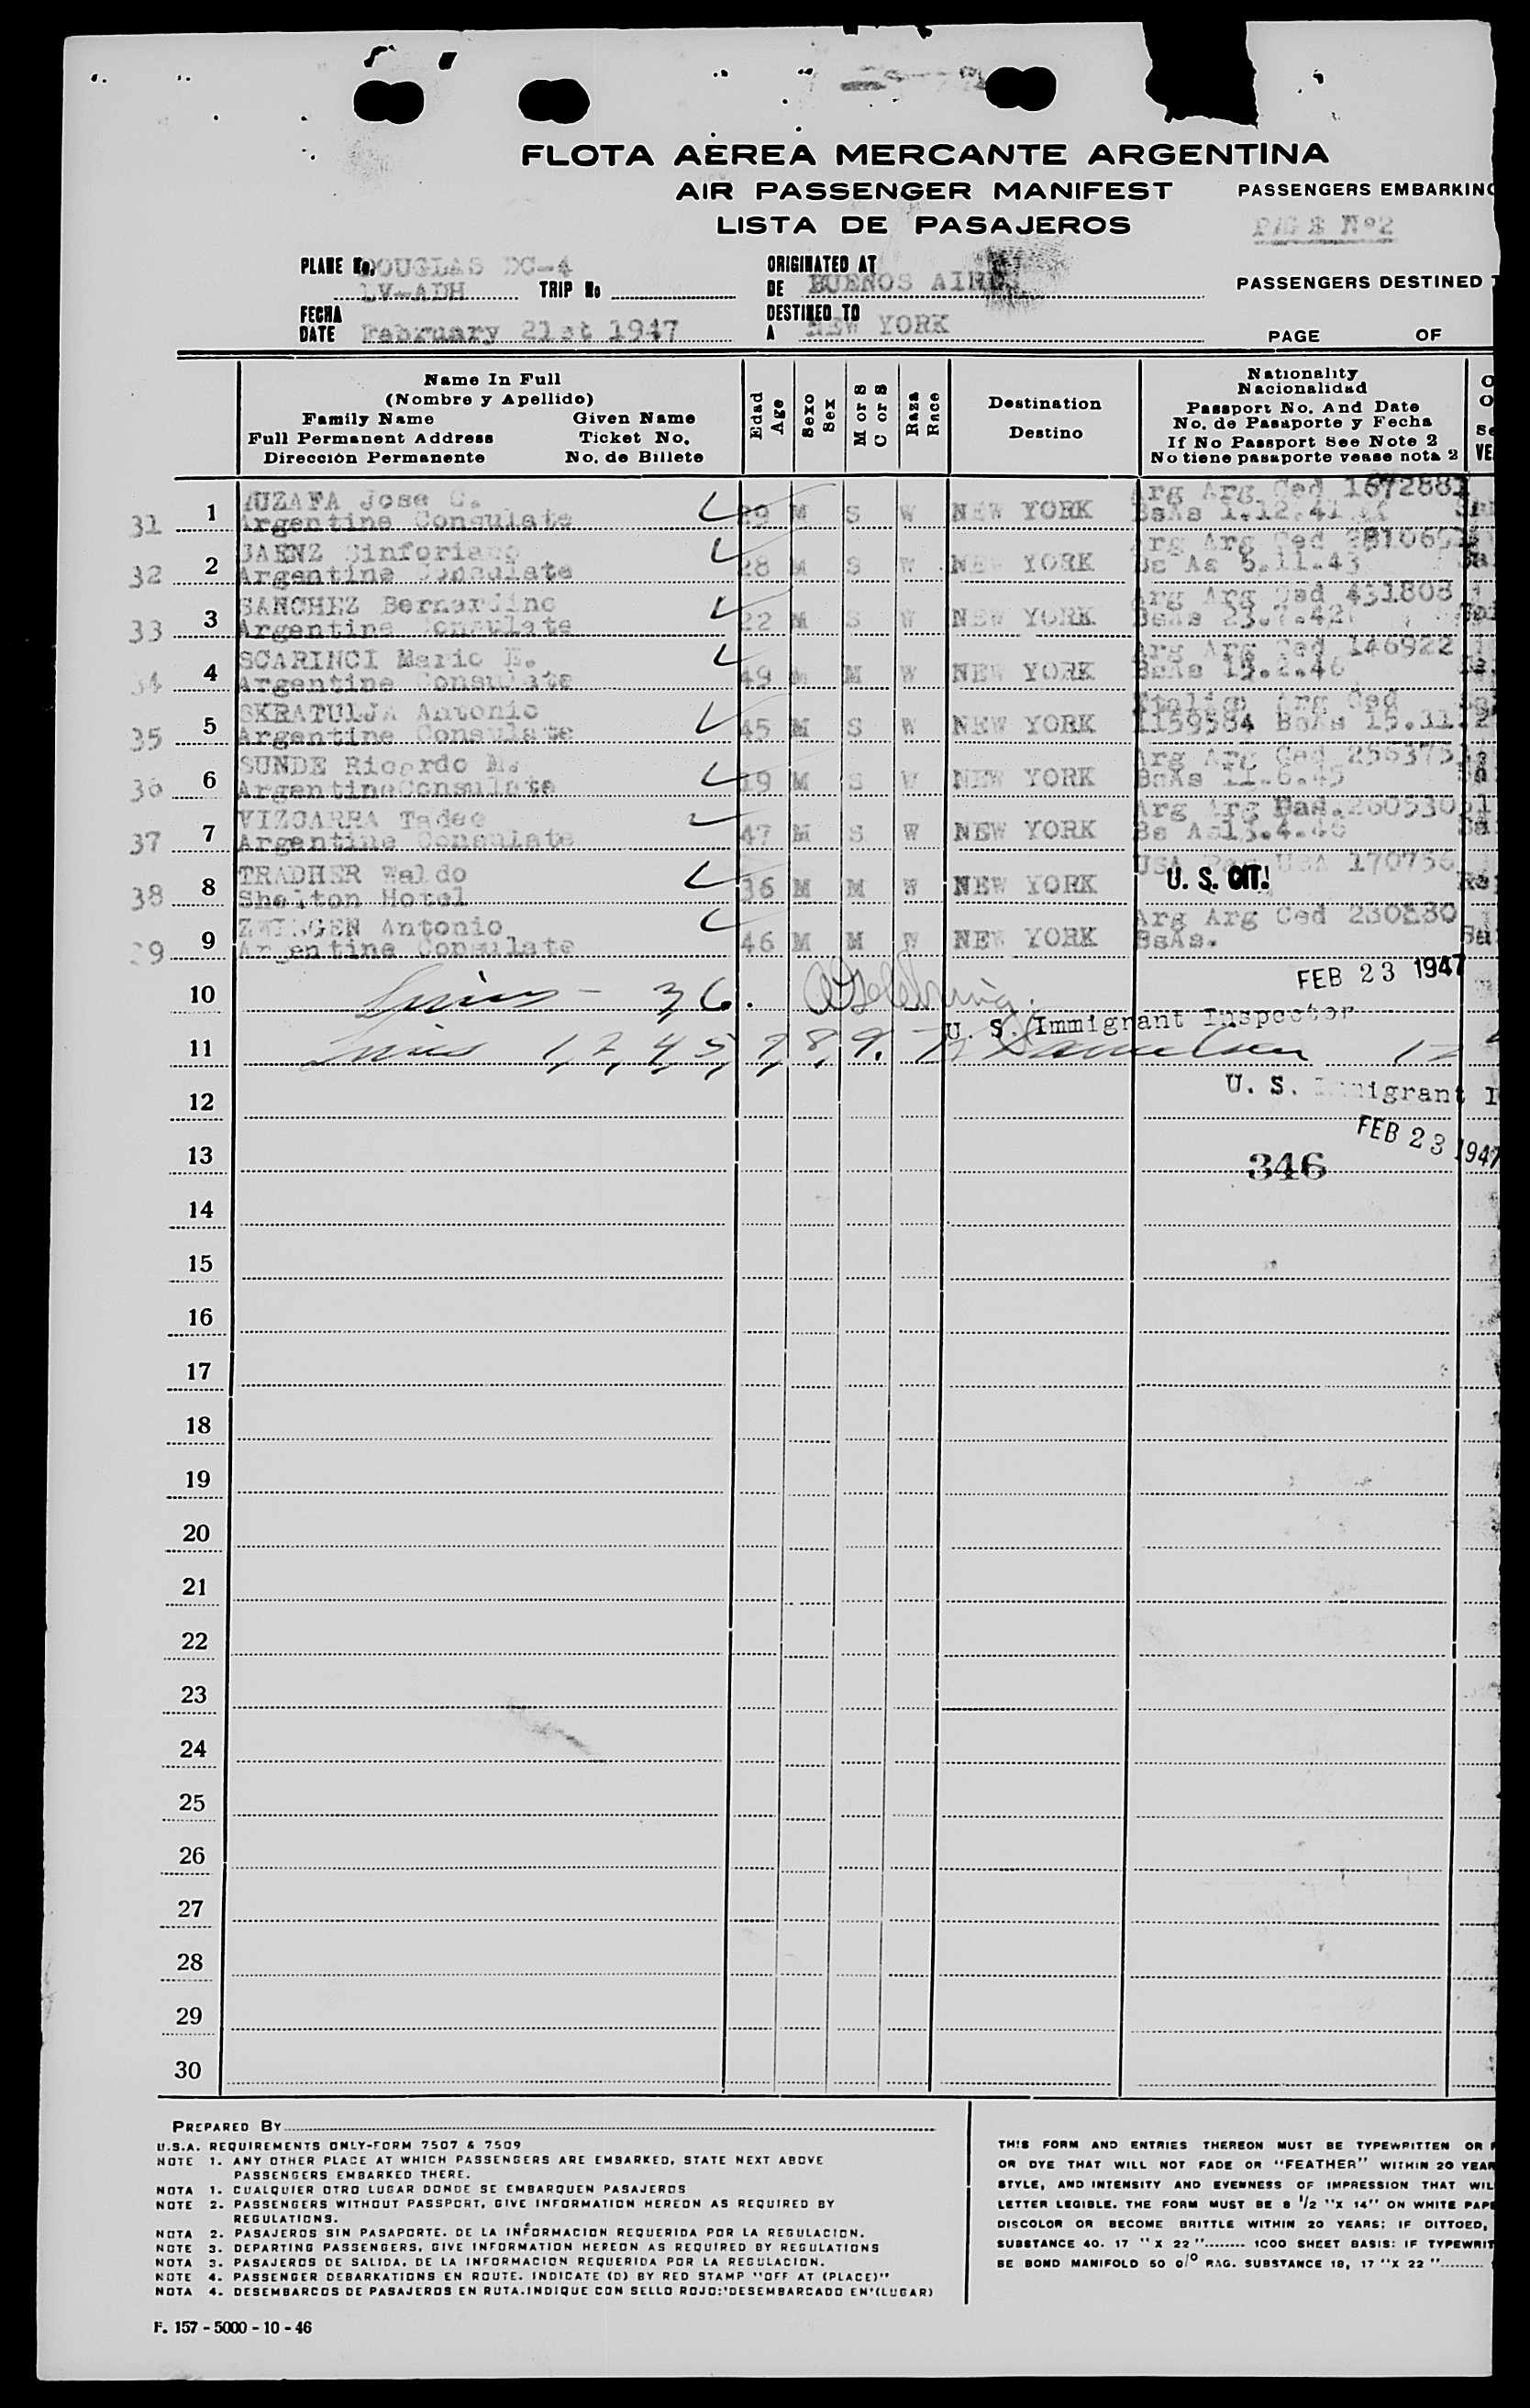 FLOTA AEREA MERCANTE ARGENTINA
AIR PASSENGER MANIFEST
PASSENGERS EMBARKING
LISTA DE PASAJEROS
Nº2
PLANE No. DOUGLAS DC-4
LV-ADH TRIP No
ORIGINATED AT
DE BUENOS AIRES
PASSENGERS DESTINED T
FECHA
DATE February 21st 1947
DESTINED TO
A NEW YORK
PAGE OF
Name In Full
(Nombre y Apellido)
Family Name Given Name
Full Permanent Address Ticket No.
Dirección Permanente No. de Billete
Edad
Age
Sexo
Sex
M or S
C or S
Raza
Race
Destination
Destino
Nationality
Nacionalidad
Passport No. And Date
No. de Pasaporte y Fecha
If No Passport See Note 2
No tiene pasaporte vease nota 2
31 1 Jose C.
Argentine Consulate 29 M S W NEW YORK Arg Arg Ced 1672881
BsAs 1.12.41
32 2 SAENZ Sinforiano
Argentine Consulate 28 M S W NEW YORK Arg Arg Ced
Bs As 5.11.43
33 3 SANCHEZ Bernardino
Argentine Consulate 22 M S W NEW YORK Arg Arg Ced 431808
BsAs 23.7.42
34 4 SCARINCI Mario E.
Argentine Consulate 49 M M W NEW YORK Arg Arg Ced 146922
BsAs
35 5 SKRATULJA Antonio
Argentine Consulate 45 M S W NEW YORK Italian Arg Ced
1159584 BsAs 15.11.
36 6 SUNDE Ricardo M.
ArgentineConsulate 19 M S W NEW YORK Arg Arg Ced 256375
BsAs 11.6.45
37 7 VIZCARRA Tadeo
Argentine Consulate 47 M S W NEW YORK Arg Arg Pas.
Bs As
38 8 TRADHER Waldo
Shelton Hotel 36 M M W NEW YORK USA Pas USA 170756
U. S. CIT.
39 9 ZWINGEN Antonio
Argentine Consulate 46 M M W NEW YORK Arg Arg Ced
BsAs.
FEB 23 1947
10 Lines - 3, 6.
U. S. Immigrant Inspector
11 Lines 1, 2, 4, 5, 7, 8, 9.
12 U. S. Immigrant I
FEB 23 1947
13 346
14
15
16
17
18
19
20
21
22
23
24
25
26
27
28
29
30
PREPARED BY
U.S.A. REQUIREMENTS ONLY-FORM 7507 & 7509
NOTE 1. ANY OTHER PLACE AT WHICH PASSENGERS ARE EMBARKED, STATE NEXT ABOVE
PASSENGERS EMBARKED THERE.
NOTA 1. CUALQUIER OTRO LUGAR DONDE SE EMBARQUEN PASAJEROS
NOTE 2. PASSENGERS WITHOUT PASSPORT, GIVE INFORMATION HEREON AS REQUIRED BY
REGULATIONS.
NOTA 2. PASAJEROS SIN PASAPORTE. DE LA INFORMACION REQUERIDA POR LA REGULACION.
NOTE 3. DEPARTING PASSENGERS, GIVE INFORMATION HEREON AS REQUIRED BY REGULATIONS
NOTA 3. PASAJEROS DE SALIDA, DE LA INFORMACION REQUERIDA POR LA REGULACION.
NOTE 4. PASSENGER DEBARKATIONS EN ROUTE. INDICATE (D) BY RED STAMP "OFF AT (PLACE)"
NOTA 4. DESEMBARCOS DE PASAJEROS EN RUTA.INDIQUE CON SELLO ROJO:'DESEMBARCADO EN'(LUGAR)
THIS FORM AND ENTRIES THEREON MUST BE TYPEWRITTEN OR
OR DYE THAT WILL NOT FADE OR "FEATHER" WITHIN 20 YEAR
STYLE, AND INTENSITY AND EVENNESS OF IMPRESSION THAT WIL
LETTER LEGIBLE. THE FORM MUST BE 8 1/2 "X 14" ON WHITE PAP
DISCOLOR OR BECOME BRITTLE WITHIN 20 YEARS; IF DITTOED,
SUBSTANCE 40. 17 " X 22 "........ 1000 SHEET BASIS: IF TYPEWRIT
BE BOND MANIFOLD 50 0/0 RAG. SUBSTANCE 18, 17 "X 22 "........
F. 157 - 5000 - 10 - 46